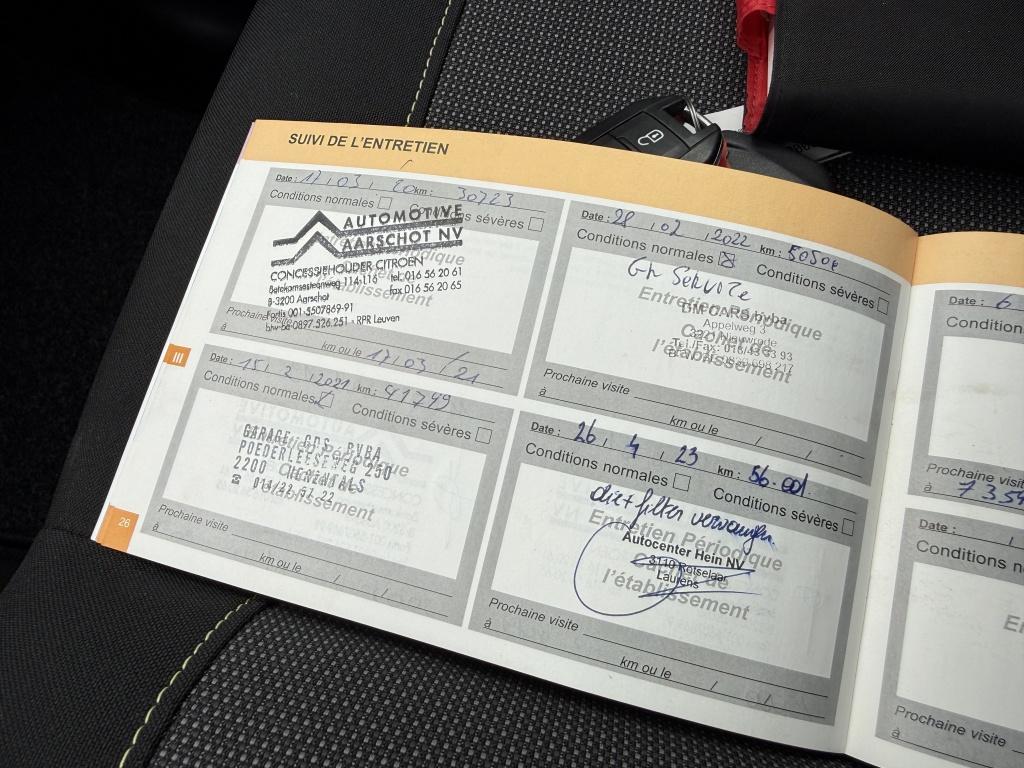 SUIVI DE L'ENTRETIEN
Date : 17 / 03 / 20 km : 30723
Conditions normales
Conditions sévères
AUTOMOTIVE
AARSCHOT NV
CONCESSIEHOUDER CITROEN
Betekomsesteenweg 114-116 tel. 016 56 20 61
B-3200 Aarschot fax 016 56 20 65
Fortis 001-5507869-91
btw-be 0897.526.251 - RPR Leuven
Prochaine visite
à km ou le 17 / 03 / 21
Date : 15 / 2 / 2021 km : 41749
Conditions normales Conditions sévères
Entretien Périodique
Cachet de
l'établissement
GARAGE CDS BVBA
POEDERLEESEWEG 250
2200 HERENTALS
Prochaine visite
à km ou le / /
Date : 28 / 02 / 2022 km :
Conditions normales Conditions sévères
Gr Service
Entretien Périodique
Cachet de
l'établissement
DM CARS bvba
Appelweg 3
Prochaine visite
à km ou le / /
Date : 26 / 4 / 23 km : 56.001
Conditions normales
Conditions sévères
olie + filter vervangen
Entretien Périodique
Cachet de
l'établissement
Autocenter Hein NV
3110 Rotselaar
Laurens
Prochaine visite
à km ou le / /
III
26
Date : 6
Prochaine visite
à
Date :
Prochaine visite
à